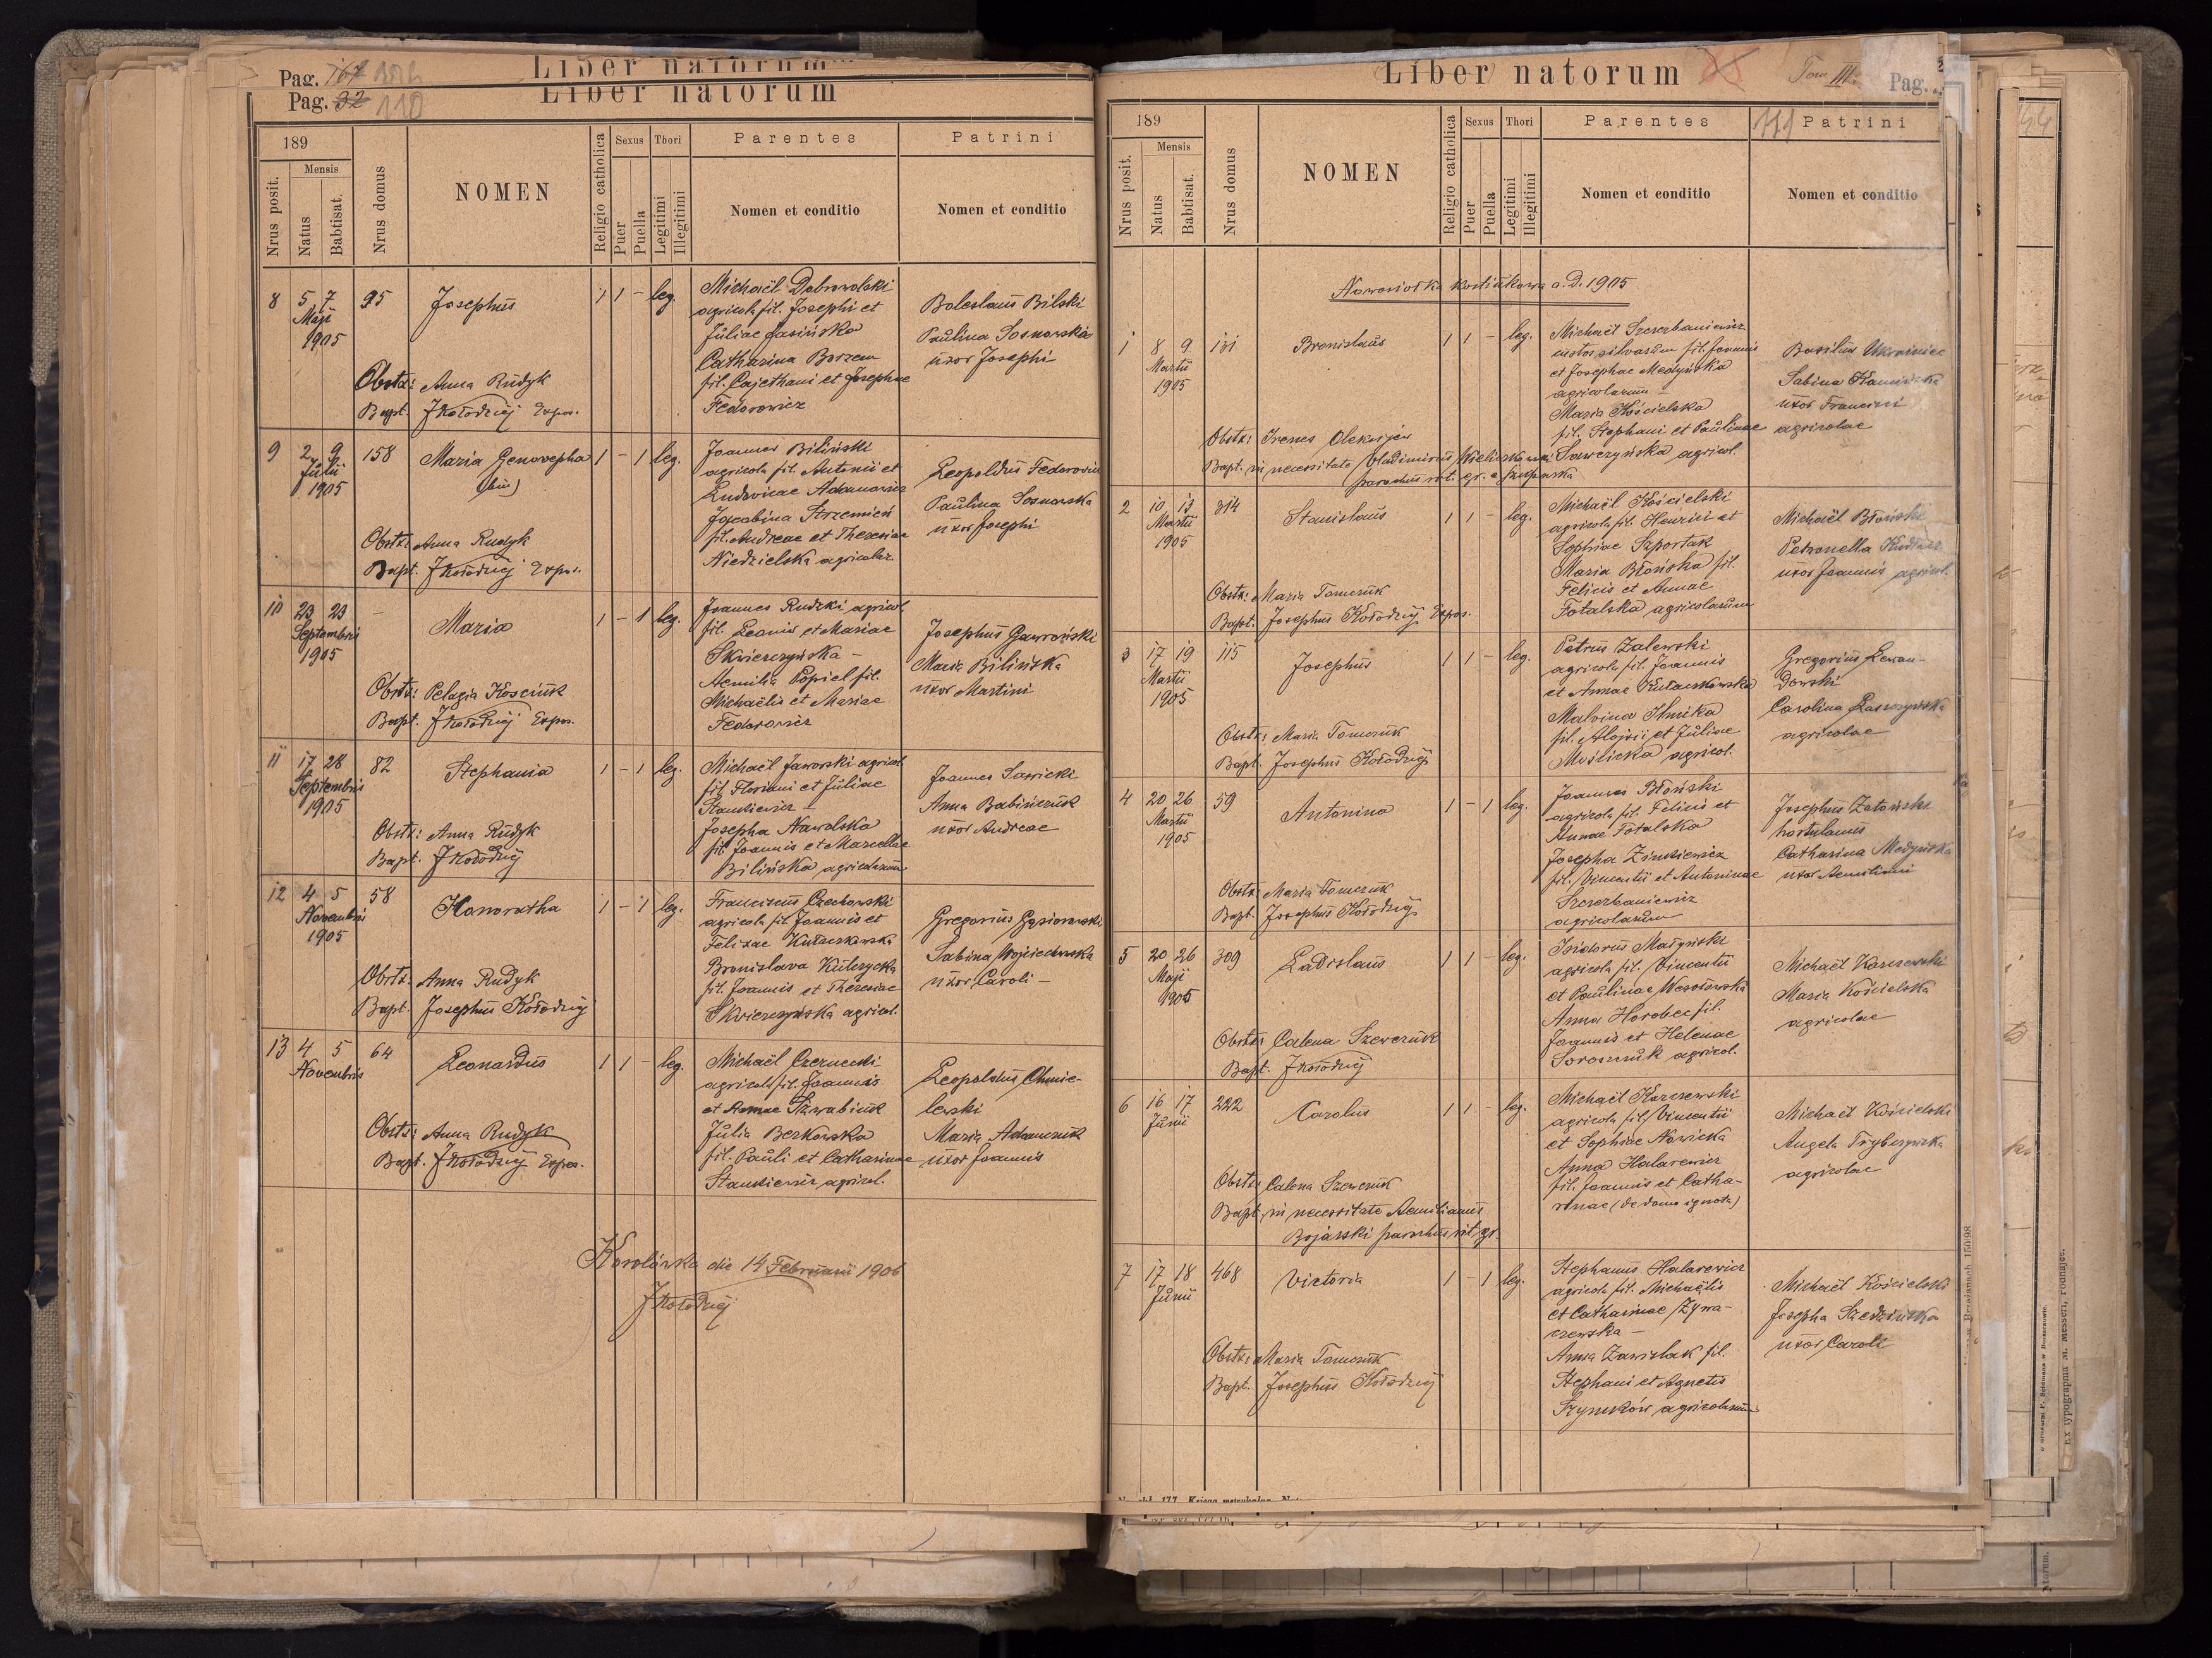 Pag. 167
Liber natorum
Pag. 32 110
Liber natorum
189
Nrus posit.
Mensis
Natus
Babtisat.
Nrus domus
NOMEN
Religio catholica
Sexus
Puer
Puella
Thori
Legitimi
Illegitimi
Parentes
Nomen et conditio
Patrini
Nomen et conditio
8 5 7 95 Josephus 1 1 - leg.
Maji
1905
Michaël Dobrowolski
agricola fil. Josephi et
Juliae Jasińska
Catharina Borzem
fil. Cajethani et Josephae
Fedorowicz
Boleslaus Bilski
Paulina Sosnowska
uxor Josephi
Obstx: Anna Rudyk
Bapt. JKołodziej Expos.
9 2 9 158 Maria Genovepha 1 - 1 leg.
Julii (bin)
1905
Joannes Biliński
agricola fil. Antonii et
Ludovicae Adamowicz
Jacobina Strzemień
fil. Andreae et Theresiae
Niedzielska agricolar.
Leopoldus Fedorowicz
Paulina Sosnowska
uxor Josephi
Obstx: Anna Rudyk
Bapt. JKołodziej Expos.
10 23 23 - Maria 1 - 1 leg.
Septembris
1905
Joannes Rudzki agricol.
fil. Leonis et Mariae
Skwierczyńska -
Aemilia Popiel fil.
Michaëlis et Mariae
Fedorowicz
Josephus Gawroński
Maria Bilińska
uxor Martini
Obstx: Pelagia Kosciuk
Bapt. JKołodziej Expos.
11 17 28 82 Stephania 1 - 1 leg.
Septembris
1905
Michaël Jaworski agricol.
fil. Floriani et Juliae
Stankiewicz -
Josepha Nawalska
fil. Joannis et Marcellae
Bilińska agricolarum
Joannes Sawicki
Anna Babińczuk
uxor Andreae
Obstx: Anna Rudyk
Bapt. JKołodziej
12 4 5 58 Honoratha 1 - 1 leg.
Novembris
1905
Franciscus Czechowski
agricola fil. Joannis et
Felixae Kułaczkowska
Bronislava Kulczycka
fil. Joannis et Theresiae
Skwierczyńska agricol.
Gregorius Gąsiorowski
Sabina Wojciechowska
uxor Caroli -
Obstx: Anna Rudyk
Bapt. Josephus Kołodziej
13 4 5 64 Leonardus 1 1 - leg.
Novembris
Michaël Czernecki
agricola fil. Joannis
et Annae Szwabiuk
Julia Berkowska
fil. Pauli et Catharinae
Stankiewicz agricol.
Leopoldus Chmie-
lewski
Maria Adamczuk
uxor Joannis
Obstx: Anna Rudyk
Bapt. JKołodziej Expos.
Korolówka die 14 Februarii 1906
JKołodziej
Liber natorum
Tom III.
Pag.
111
189
Nrus posit.
Mensis
Natus
Babtisat.
Nrus domus
NOMEN
Religio catholica
Sexus
Puer
Puella
Thori
Legitimi
Illegitimi
Parentes
Nomen et conditio
Patrini
Nomen et conditio
Nowosiołka kostiukowa a. D. 1905
1 8 9 131 Bronislaus 1 1 - leg.
Martii
1905
Michaël Szczerbaniewicz
custos silvarum fil. Joannis
et Josephae Medyńska
agricolarum -
Maria Kościelska
fil. Stephani et Paulinae
Sawczyńska agricol.
Basilius Ukrainiec
Sabina Kamińska
uxor Francisci
agricolae
Obstx: Irenes Oleksijew
Bapt. in necessitate Vladimirus
parochus rit. gr.
2 10 13 314 Stanislaus 1 1 - leg.
Martii
1905
Michaël Kościelski
agricola fil. Henrici et
Sophiae Szportak
Maria Błońska fil.
Felicis et Annae
Fotalska agricolarum
Michaël Błoński
Petronella
uxor Joannis agricol.
Obstx: Maria Tomczuk
Bapt. Josephus Kołodziej Expos.
3 17 19 115 Josephus 1 1 - leg.
Martii
1905
Petrus Zalewski
agricola fil. Joannis
et Annae Kułaczkowska
Malvina Ilnicka
fil. Alojsii et Juliae
Mościcka agricol.
Gregorius Lewan-
dowski
Carolina
agricolae
Obstx: Maria Tomczuk
Bapt. Josephus Kołodziej
4 20 26 59 Antonina 1 - 1 leg.
Martii
1905
Joannes Błoński
agricola fil. Felicis et
Annae Fotalska
Josepha Zinkiewicz
fil. Vincentii et Antoninae
Szczerbaniewicz
agricolarum
Josephus Zatoński
hortulanus
Catharina Medyńska
uxor Aemiliani
Obstx: Maria Tomczuk
Bapt. Josephus Kołodziej
5 20 26 309 Ladislaus 1 1 - leg.
Maji
1905
Isidorus Małyński
agricola fil. Vincentii
et Paulinae Wesołowska
Anna Horobec fil.
Joannis et Helenae
Soroszczuk agricol.
Michaël Karczewski
Maria Kościelska
agricolae
Obstx: Calena Szewczuk
Bapt. JKołodziej
6 16 17 222 Carolus 1 1 - leg.
Junii
Michaël Karczewski
agricola fil. Vincentii
et Sophiae Nowicka
Anna Halarewicz
fil. Joannis et Catha-
rinae (de domo ignota)
Michaël Kościelski
Angela Trybczyńska
agricolae
Obstx: Calena Szewczuk
Bapt. in necessitate Aemilianus
Bojarski parochus rit. gr.
7 17 18 468 Victoria 1 - 1 leg.
Junii
Stephanus Halarewicz
agricola fil. Michaëlis
et Catharinae Żywa-
czewska -
Anna Zawislak fil.
Stephani et Agnetis
Szymków agricolarum
Michaël Kościelski
Josepha Szedzińska
uxor Caroli
Obstx: Maria Tomczuk
Bapt. Josephus Kołodziej
Ex typographia M. Messeri, rodnajsc.